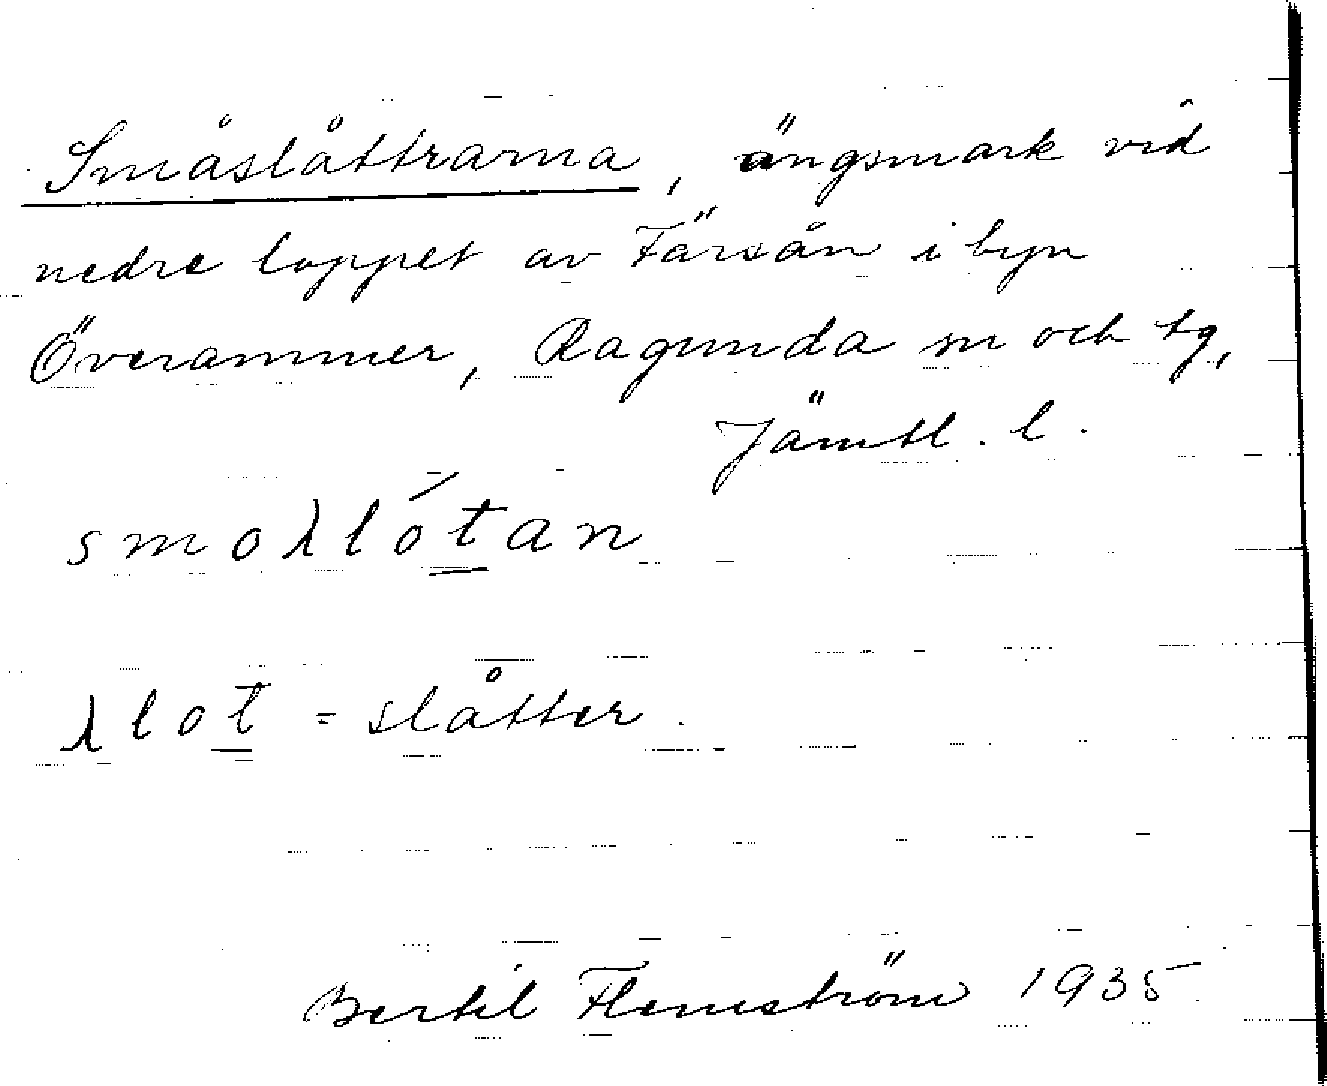 Småslåttrarna, ängsmark vid
nedre loppet av Färsån i byn
Överammer, Ragunda sn och tg,
Jämtl. l.
smoλlótan
λlot = slåtter.
Bertil Flemström 1935